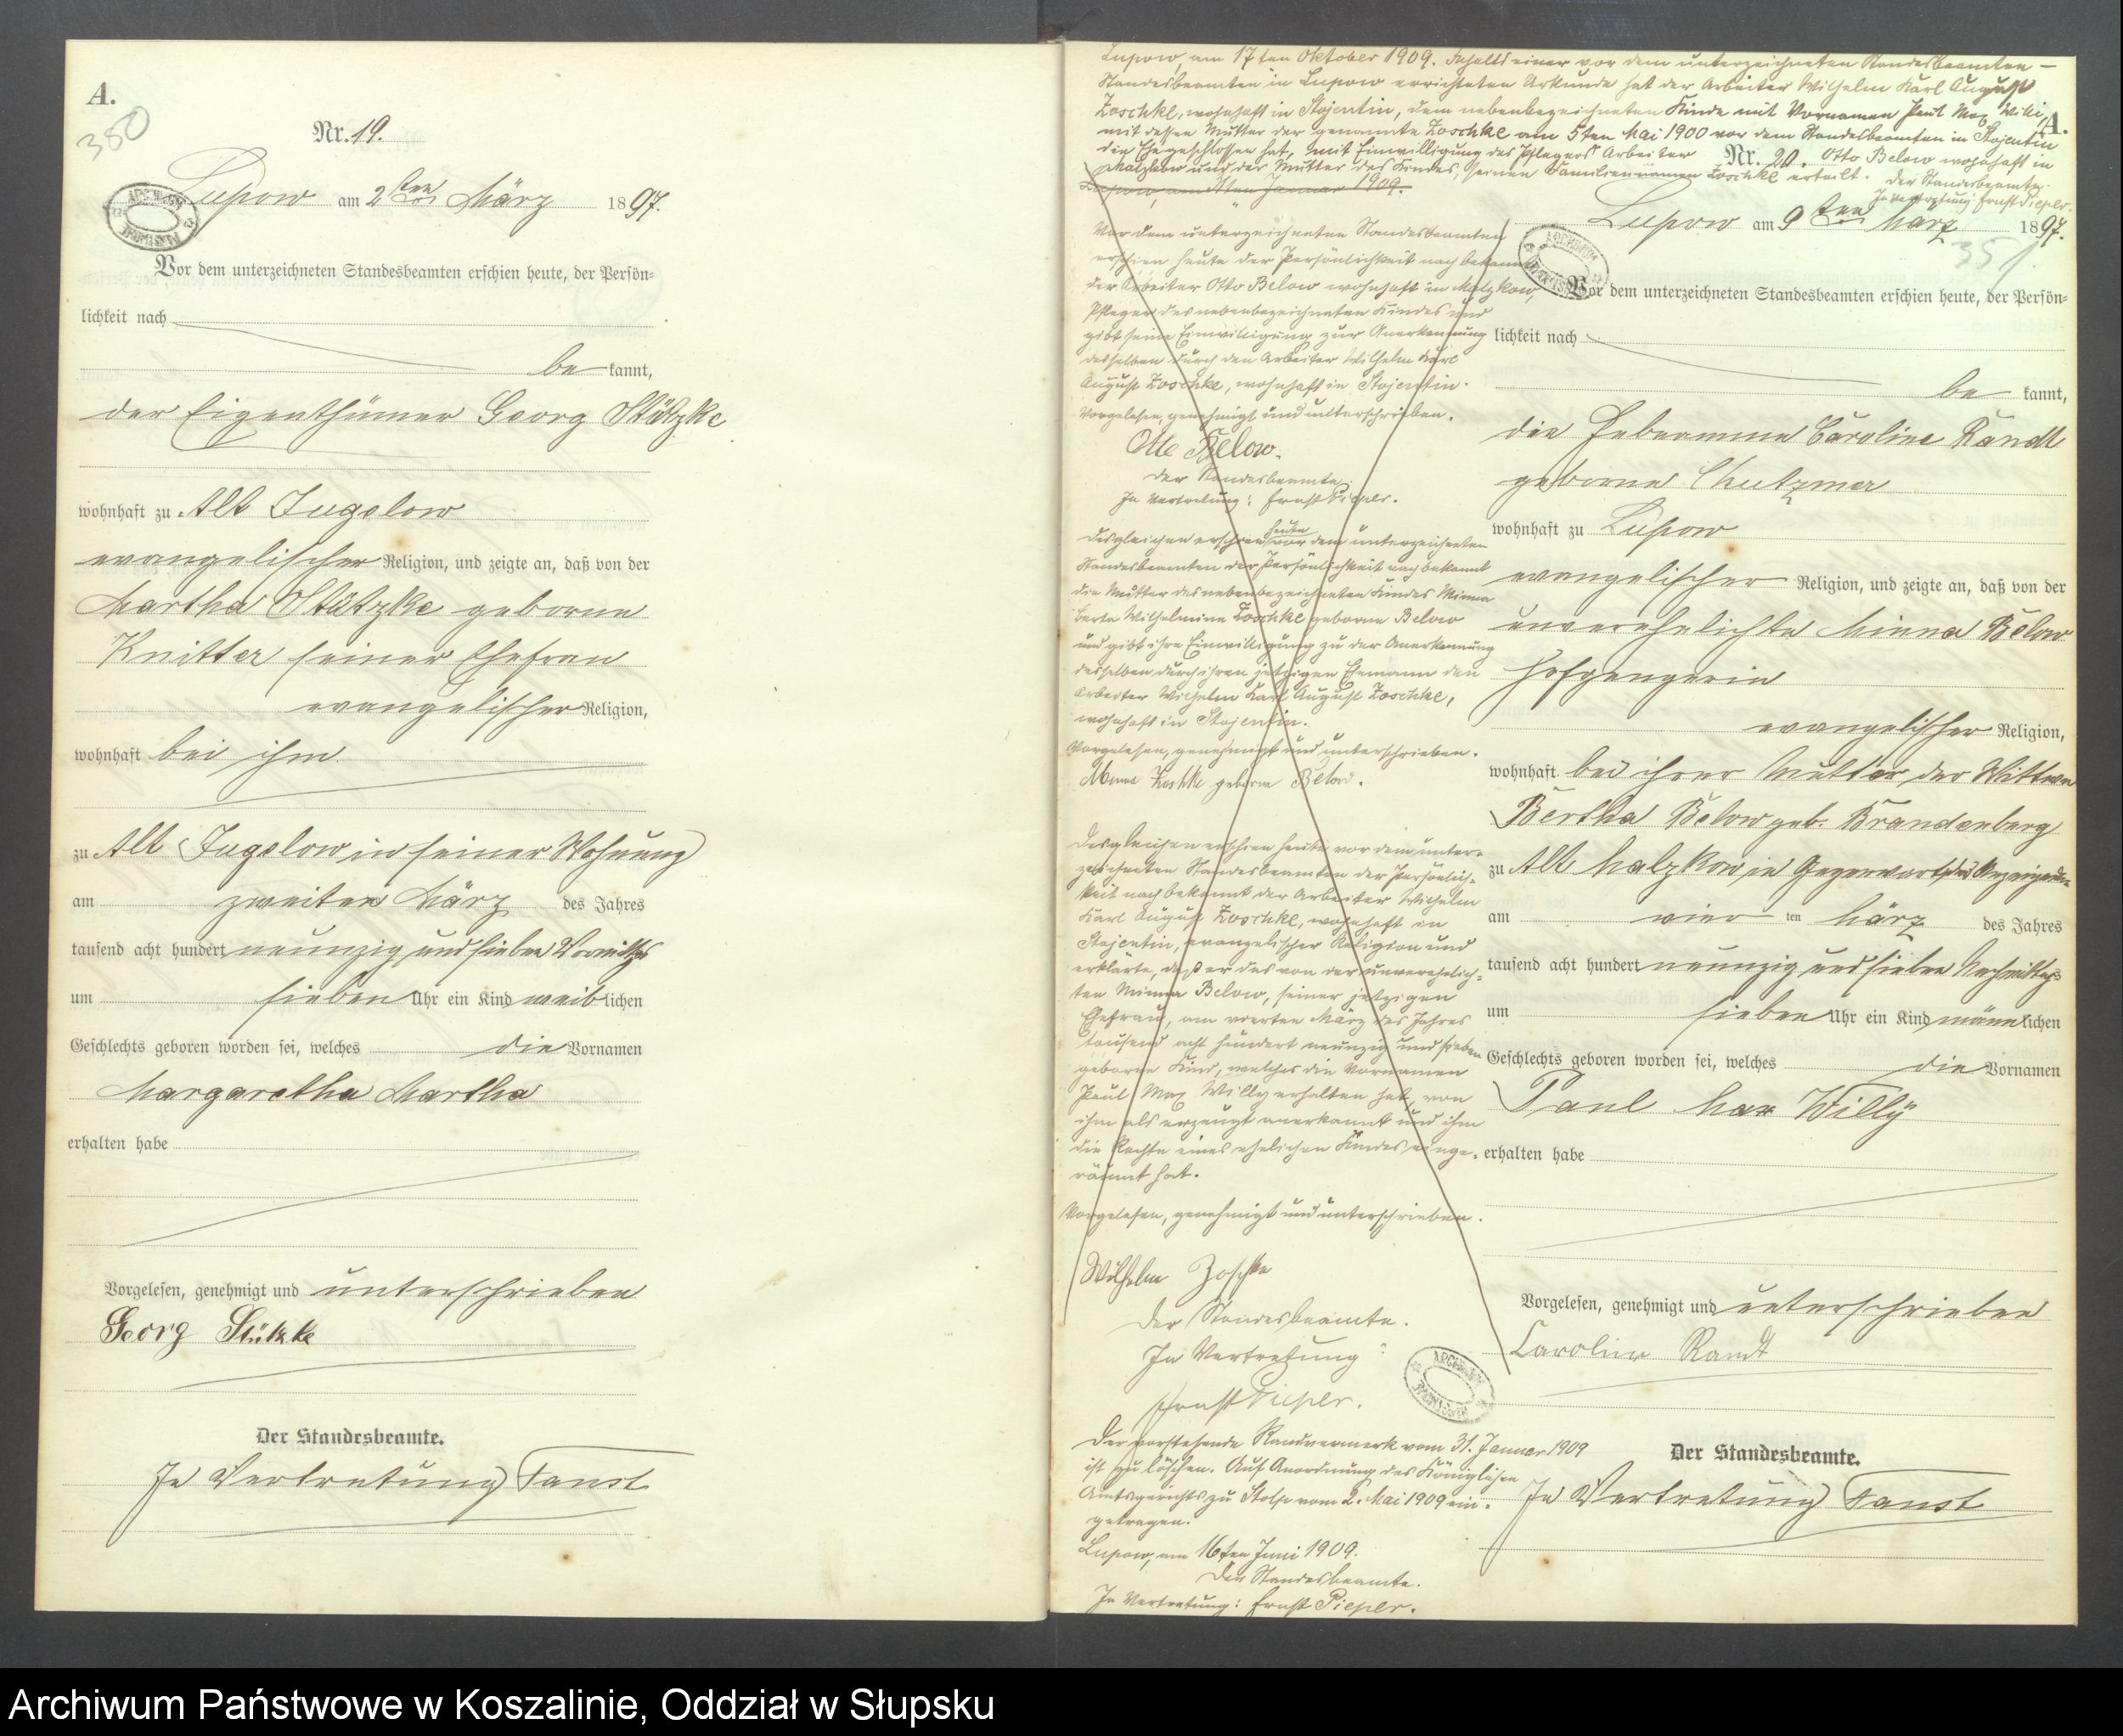 A.
380
Nr. 19.
Lupow am 2ten März 1897.
Vor dem unterzeichneten Standesbeamten erschien heute, der Persön-
lichkeit nach
be kannt,
der Eigenthümer Georg Stützke
wohnhaft zu Alt Jugelow
evangelischer Religion, und zeigte an, daß von der
Martha Stützke geborne
Knitter seiner Ehefrau
evangelischer Religion,
wohnhaft bei ihm
zu Alt Jugelow in seiner Wohnung
am zweiten März des Jahres
tausend acht hundert neunzig und sieben Vormittags
um sieben Uhr ein Kind weiblichen
Geschlechts geboren worden sei, welches die Vornamen
Margaretha Martha
erhalten habe
Vorgelesen, genehmigt und unterschrieben
Georg Stützke
Der Standesbeamte.
In Vertretung Faust
Lupow, am 17ten Oktober 1909. Inhalts einer vor dem unterzeichneten Standesbeamten –
Standesbeamten in Lupow errichteten Urkunde hat der Arbeiter Wilhelm Karl August
Zoschke, wohnhaft in Stojentin, dem nebenbezeichneten Kinde mit Vornamen Paul Max Willi,
mit dessen Mutter der genannte Zoschke am 5ten Mai 1900 vor dem Standesbeamten in Stojentin
die Ehe geschlossen hat, mit Einwilligung des Pflegers Arbeiter Otto Below wohnhaft in
Malzkow und der Mutter des Kindes, seinen Familiennamen Zoschke erteilt. Der Standesbeamte.
In Vertretung: Ernst Pieper.
Lupow, am 31ten Januar 1909.
Vor dem unterzeichneten Standesbeamten
erschien heute der Persönlichkeit nach bekannt
der Arbeiter Otto Below wohnhaft in Malzkow,
Pfleger des nebenbezeichneten Kindes und
gibt seine Einwilligung zur Anerkennung
desselben durch den Arbeiter Wilhelm Karl
August Zoschke, wohnhaft in Stojentin.
Vorgelesen, genehmigt und unterschrieben.
Otto Below.
Der Standesbeamte
In Vertretung: Ernst Pieper.
Desgleichen erschien heute vor dem unterzeichneten
Standesbeamten der Persönlichkeit nach bekannt
die Mutter des nebenbezeichneten Kindes Minna
Berta Wilhelmine Zoschke geborne Below
und gibt ihre Einwilligung zu der Anerkennung
desselben durch ihren jetzigen Ehemann den
Arbeiter Wilhelm Karl August Zoschke,
wohnhaft in Stojentin.
Vorgelesen, genehmigt und unterschrieben.
Minna Zoschke geborne Below.
Desgleichen erschien heute vor dem unter-
zeichneten Standesbeamten der Persönlich-
keit nach bekannt der Arbeiter Wilhelm
Karl August Zoschke, wohnhaft in
Stojentin, evangelischer Religion und
erklärte, daß er das von der unverehelich-
ten Minna Below, seiner jetzigen
Ehefrau, am vierten März des Jahres
tausend acht hundert neunzig und sieben
geborne Kind, welches die Vornamen
Paul Max Willy erhalten hat, von
ihm als erzeugt anerkannt und ihm
die Rechte eines ehelichen Kindes einge-
räumt hat.
Vorgelesen, genehmigt und unterschrieben.
Wilhelm Zoschke
Der Standesbeamte.
In Vertretung:
Ernst Pieper.
Der vorstehende Randvermerk vom 31. Januar 1909
ist zu löschen. Auf Anordnung des Königlichen
Amtsgerichts zu Stolp vom 2. Mai 1909 ein-
getragen.
Lupow, am 16ten Juni 1909.
Der Standesbeamte.
In Vertretung: Ernst Pieper.
A.
Nr. 20.
Lupow am 9ten März 1897.
351
Vor dem unterzeichneten Standesbeamten erschien heute, der Persön-
lichkeit nach
be kannt,
die Hebeamme Caroline Randt
geborne
wohnhaft zu Lupow
evangelischer Religion, und zeigte an, daß von der
unverehelichte Minna Below
Hofgengerin
evangelischer Religion,
wohnhaft bei ihrer Mutter, der Wittwe
Bertha Below geb. Brandenberg
zu Alt Malzkow, in Gegenwart der Anzeigenden
am vier ten März des Jahres
tausend acht hundert neunzig und sieben Nachmittags
um sieben Uhr ein Kind männlichen
Geschlechts geboren worden sei, welches die Vornamen
Paul Max Willy
erhalten habe
Vorgelesen, genehmigt und unterschrieben
Caroline Randt
Der Standesbeamte.
In Vertretung Faust
Archiwum Państwowe w Koszalinie, Oddział w Słupsku